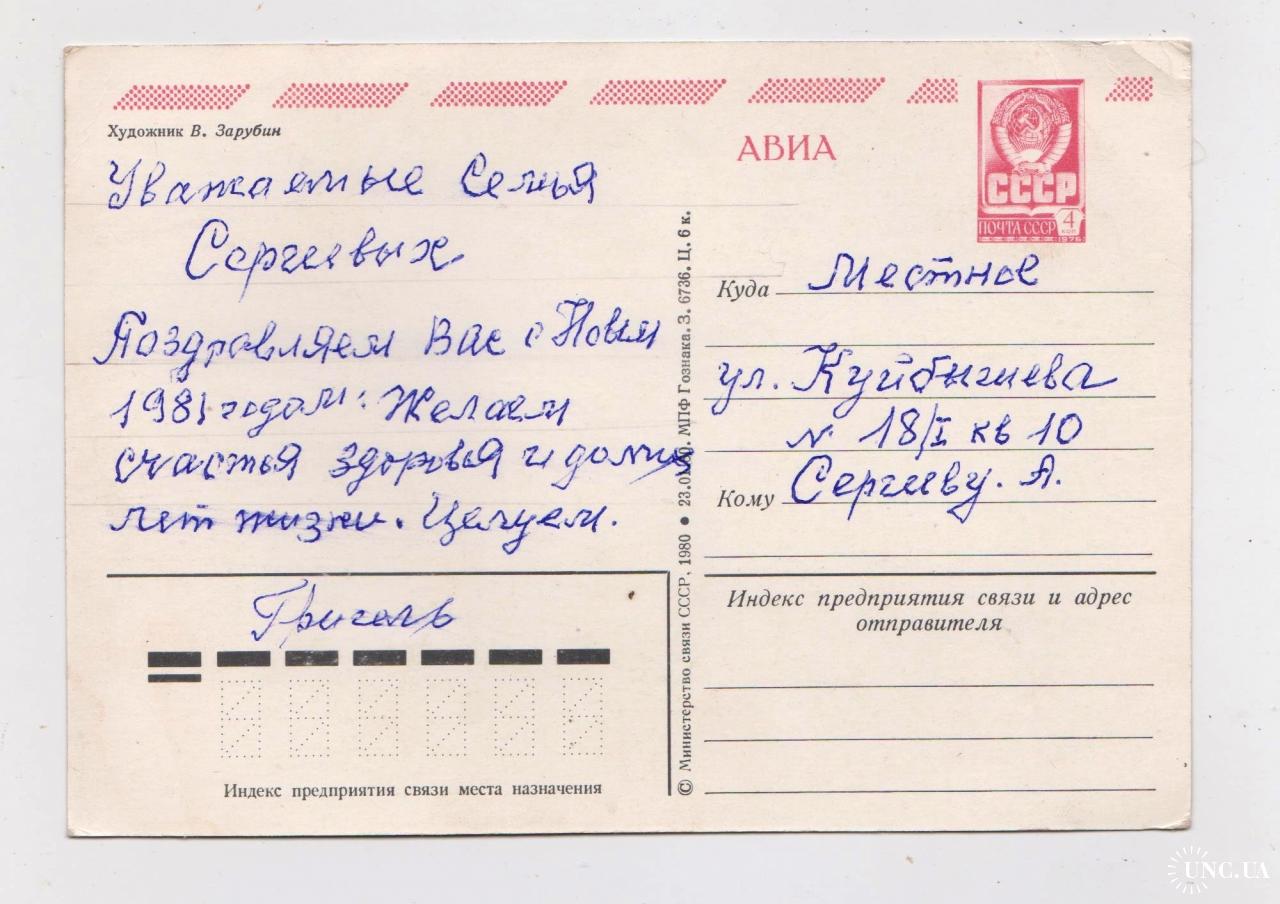 Художник В. Зарубин
АВИА
СССР
ПОЧТА СССР
4
КОП
1976
Уважаемые Семья
Сергеевых
Поздравляем Вас с Новым
1981 годом: Желаем
счастья здоровья и долгих
лет жизни. Целуем.
Григель
Индекс предприятия связи места назначения
© Министерство связи СССР, 1980 ● МПФ Гознака. З. 6736. Ц. 6 к.
Куда Местное
ул. Куйбышева
N 18/I кв 10
Кому Сергееву. А.
Индекс предприятия связи и адрес
отправителя
UNC.UA